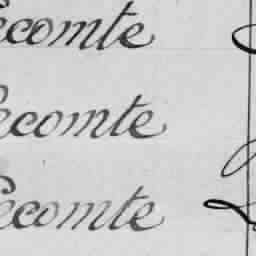 Lecomte
Lecomte
Lecomte